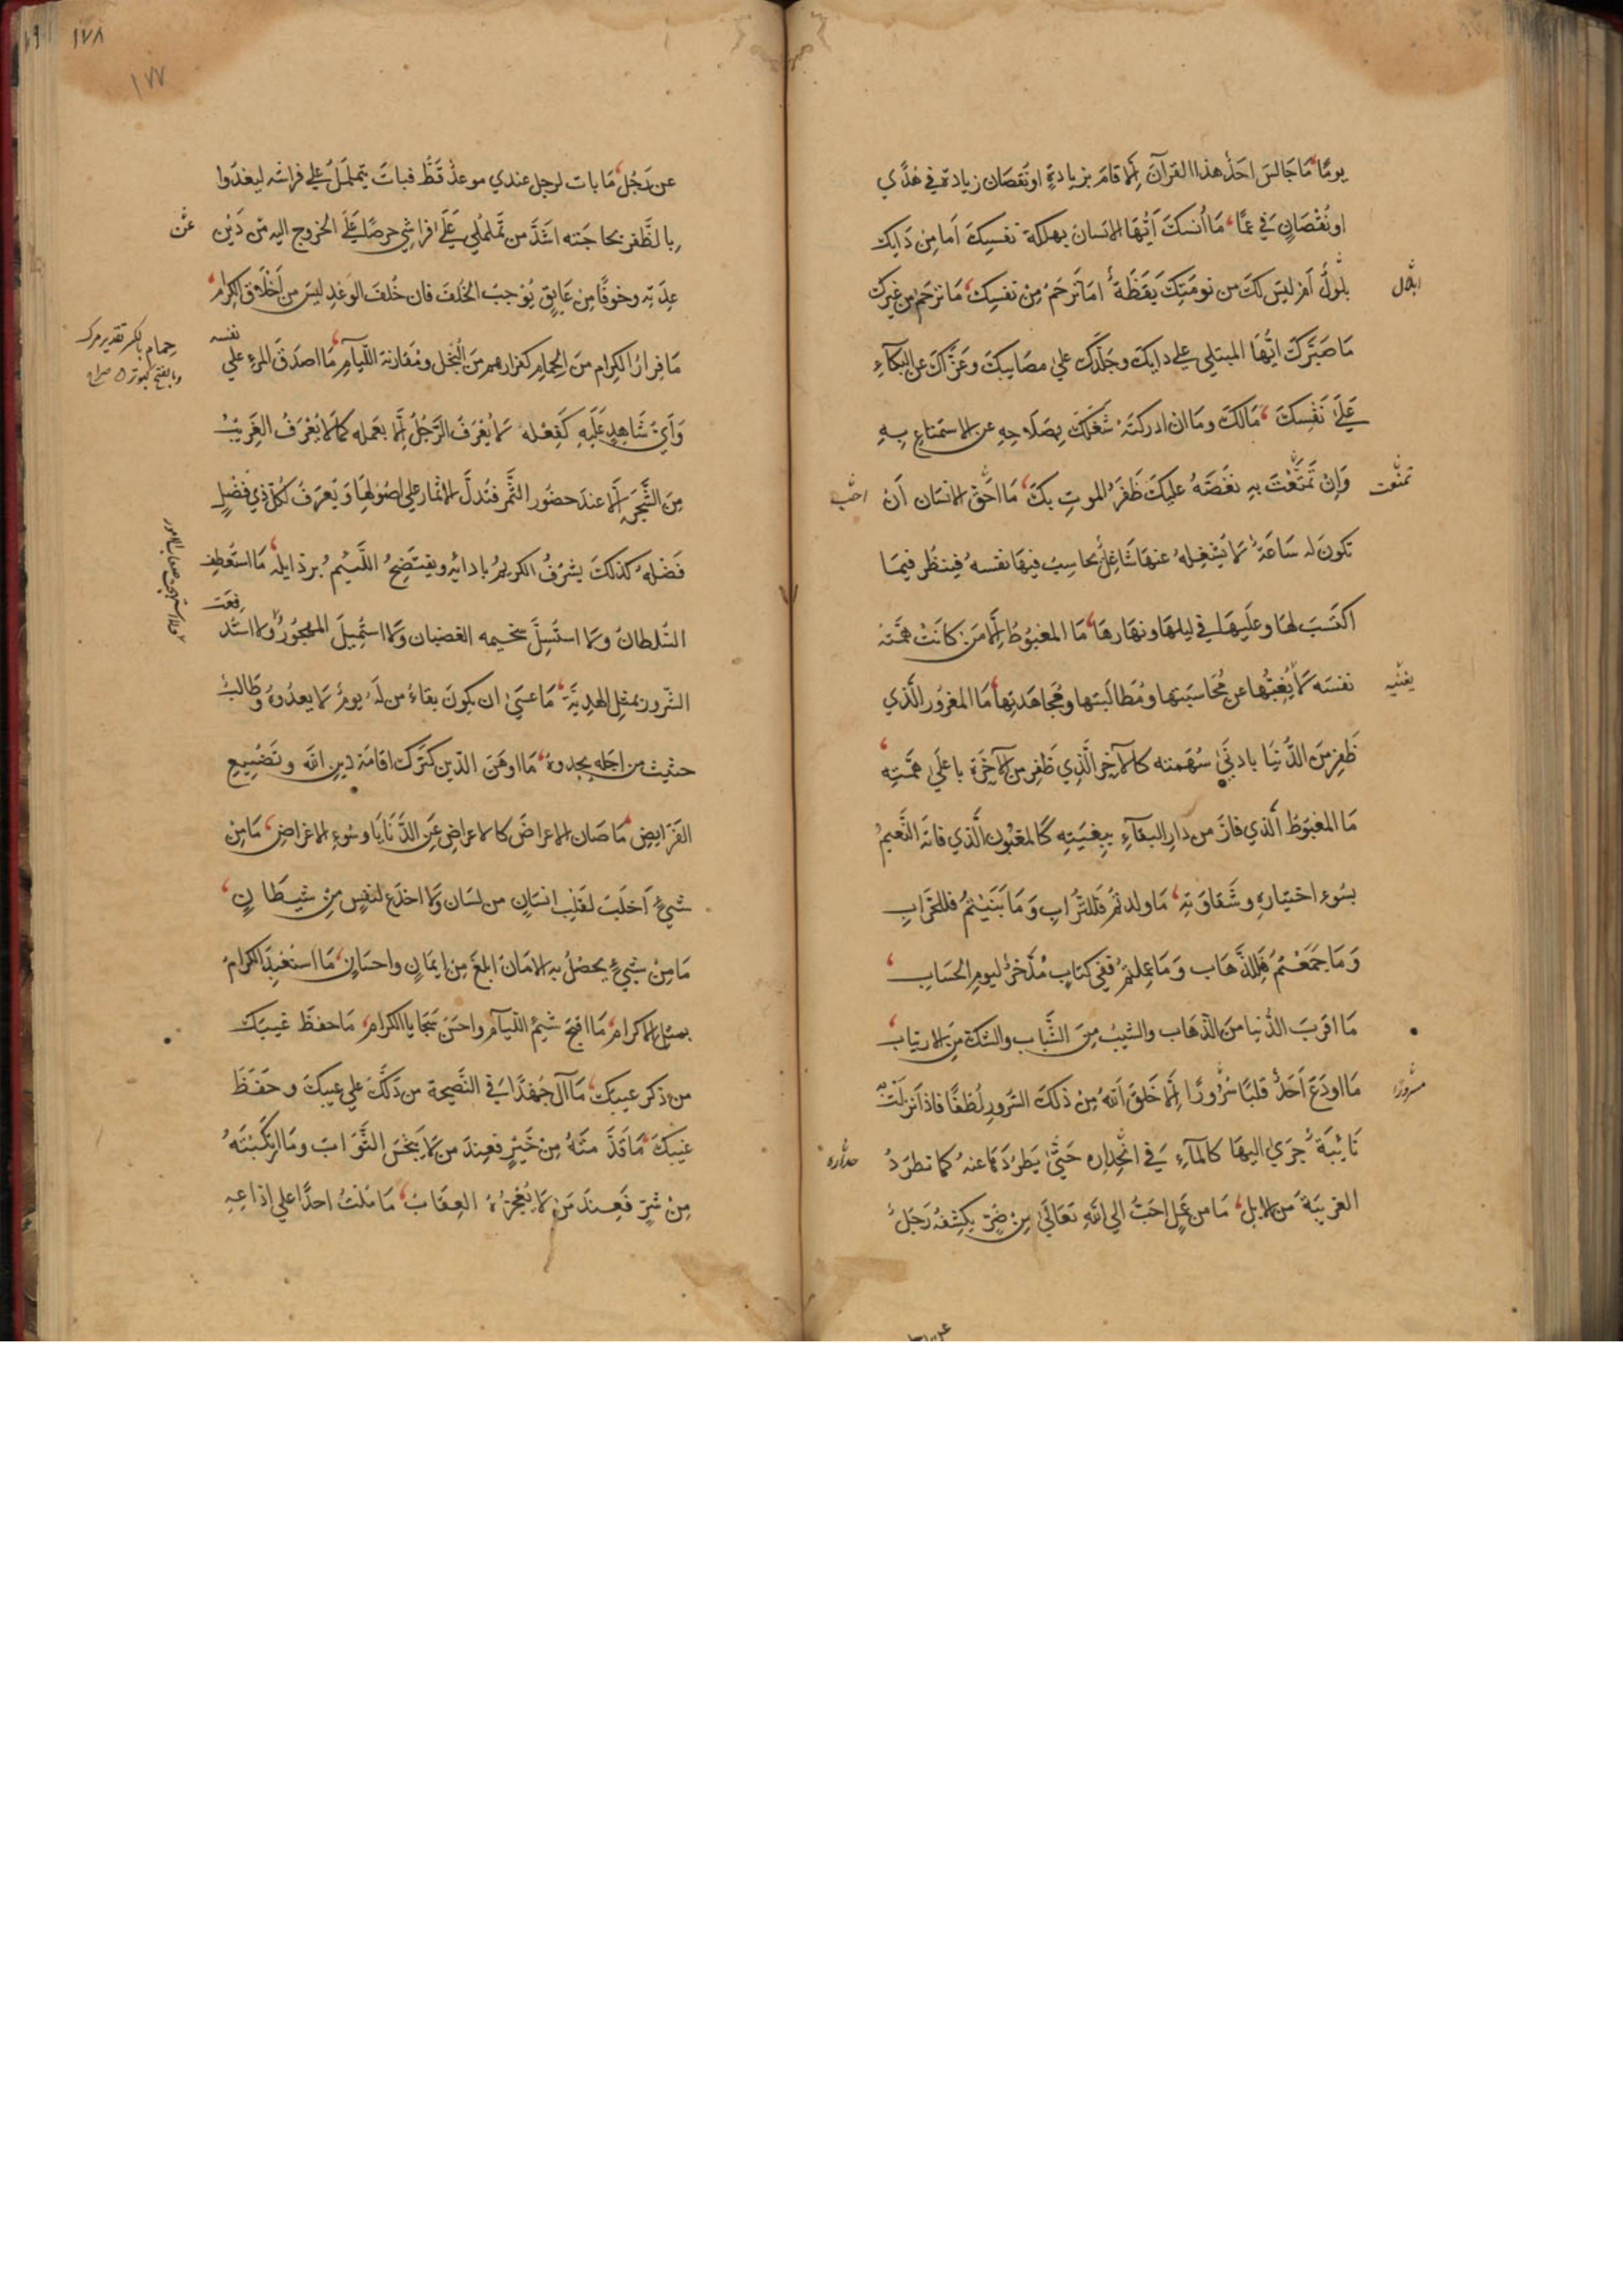 يومًا مَا جَالَسَ احَدٌ هذا القرآنَ اِلّا قامَ بزيادةٍ او نقصَان زيادة في هُدًي
او نُقْصَانٍ في عمًا مَا اَنسكَ اَيُّهَا الانسانُ بهلكة نفسِكَ اَمَا مِن دَايك
بلُولٌ اَم ليسَ لكَ من نومَتِكَ يقَظَةٌ امَا تَرحَمُ مِنْ نفسِكَ مَا ترحَمُ من غيرك
ابلال
مَا صَبَّركَ ايُّهَا المبتلي علي دايكَ وجَلَّدكَ علي مصَايبكَ وعَزَّاكَ عن البكآءِ
عَلَي نَفْسِكَ مَالَكَ ومَا ان ادركتَهُ شَغَلَكَ بِصَلَاحِهِ عن الاستمتاعِ بِهِ
وَاِنْ تَمَتَّعْتَ بهِ نغَّصَهُ عليكَ ظَفَرُ الموتِ بكَ مَا احَقَّ الانسَان اَنْ
تمتعت
تكونَ له سَاعَةٌ لا يَشغِلهُ عنهَا شَاغِلٌ يحَاسِبُ فيهَا نفسهُ فينظُر فيمَا
اكتسَبَ لهَا وعلَيهَا في ليلهَا ونهَارهَا مَا المغبُوطُ اِلّا مَن كانَتْ همّتهُ
نفسَه لا يُغِبُّها عن مُحَاسَبتِها ومُطَالَبتهَا ومُجاهَدتِهَا مَا المغرُور الَّذي
ظَفِرَ مِنَ الدُّنيَا بادنَي سُهمته كالآخِر الَّذِي ظَفِرَ من الآخِرَة باعلَي همّتِهِ
مَا المغبُوطُ الَّذي فازَ من دارِ البقآءِ ببِغيَتِهِ كَالمغبُون الَّذي فاتَهُ النَّعيمُ
بسُوءِ اختيَارهِ وشَقاوَتِهِ مَا ولدتُم فَلِلتُّرابِ وَمَا بَنَيْتُم فللخَرابِ
وَمَا جَمَعْتُم فَلِلذَّهَاب وَمَا عمِلتُمْ ففِي كتَابٍ مُدَّخرٌ ليومِ الحسَابِ
مَا اقربَ الدُّنيا مِنَ الذَّهَاب والشيبُ مِنَ الشَّبابِ والشكَّ مِنَ الارتياب
مَا اودَعَ اَحَدٌ قلبًا سُرُورًا اِلّا خَلقَ اللهُ مِنْ ذلكَ السّرورِ لُطفًا فاذا نزلَتْ
سرورًا
نَائِبَةٌ جرَي اليهَا كالمآءِ في انحِدَارِه حَتّي يَطرُدَهَا عنهُ كما تطرَدُ
الغريبَة مِنَ الابل مَا من عَمَلٍ احَبّ الي اللهِ تعَالَي مِنْ ضُرٍّ يكشِفُهُ رَجُلٌ
١٧٨
١٧٧
عن رَجُل مَا بات لرجل عندي موعدٌ قَطُّ فباتَ يتملمَلُ علي فراشه ليغدُوا
بالظَّفرِ بحاجَته اشَدَّ من تملمُلي عَلَي فراشي حرصًا عَلَي الخروج اليه من دَيْن
عِدَتِه وخوفًا مِن عَايقٍ يُوجبُ الخُلفَ فان خُلفَ الوَعْدِ ليسَ من اَخْلَاقِ الكِرامِ
مَا فِرارُ الكرام منَ الحِمَامِ كفرارهم مِنَ البُخل ومُقارنة اللّيآمِ مَا اصدَقَ المرءِ علي
نفسه
وَاَيّ شَاهِدٍ عَلَيهِ كَفِعْلهِ لا يُعْرَفُ الرَّجُلُ اِلّا بعَمله كمَا لا يُعْرَفُ الغَرِيْبُ
مِنَ الشَّجَرِ اِلّا عندَ حضُور الثَّمر فتُدلّ الاثمار علي اصُولِهَا ويُعرَفُ لكلِّ ذي فضْلٍ
فَضلهُ كذلكَ يشرَفُ الكريمُ بادابِهِ ويفتَضِحُ اللَّئِيمُ برذايلهِ مَا استُعطِفَ
السّلطانُ ولا استُسِلّ سخيمه الغضبان ولا استُمِيلَ المهجُورُ ولا استُد
فِعَت
الشّرورُ بمثِل الهدِيَّة مَا عسَي ان يكونَ بقاءُ من لَهُ يومٌ لا يعدُوهُ وطَالبٌ
حثيث من اجلهِ يحدوهُ مَا اوهَنَ الدّينَ كتَرك اقامَة دينِ اللهِ وتَضْيِيعِ
الفَرَايضِ مَا صَان الاعراضَ كالاعراضِ عَنِ الدَّنَايَا وسُوءِ الاغراضِ مَا مِنْ
شيءٍ اَخلَبَ لقَلبِ انسَانٍ من لسَان ولا اخدَع لنفسٍ مِنْ شيطَانٍ
مَا مِنْ شيءٍ يحصُلُ بهِ الامَان ابلغ مِنْ ايمَانٍ واحسَانٍ مَا استُعْبِدَ الكرامُ
بمثلِ الاكرام مَا اقبَحَ شيَمُ اللّيآمِ واحسَنَ سَجَايا الكرامِ مَا حفظَ غيبَكَ
من ذكر عيبك مَا آلَ جُهْدًا في النَّصيحة من دَلَّكَ علي عيبكَ وحَفِظَ
غيبَكَ مَا قَدَّمْتَهُ مِنْ خَيْرٍ فعِندَ من لا يَبْخَسُ الثَّوَابَ ومَا ارتكَبْتَهُ
مِنْ شَرٍّ فَعِندَ مَنْ لا يُعْجِزُهُ العِقَابُ مَا نلتُ احدًا علي اذاعهِ